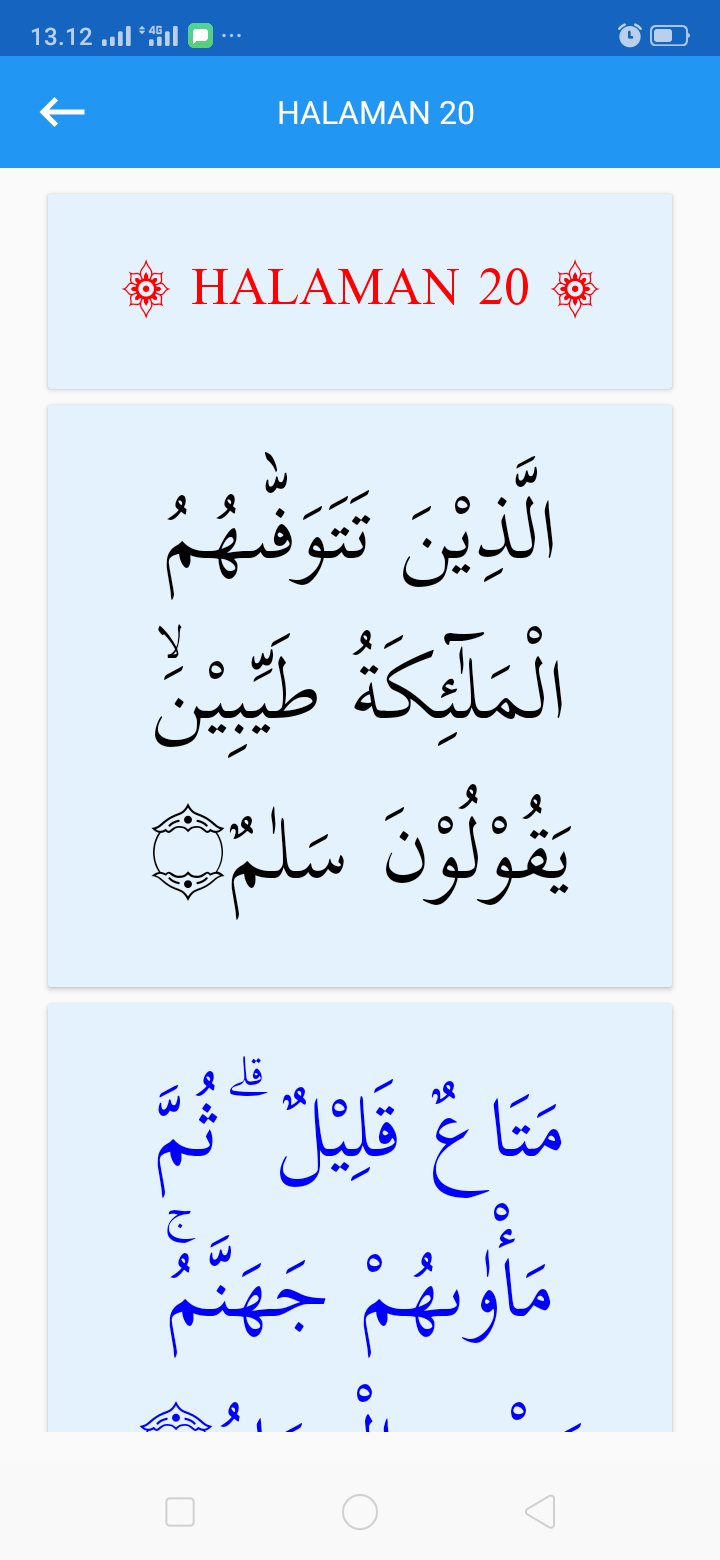 13.12 4G ...
HALAMAN 20
HALAMAN 20
الَّذِيْنَ تَتَوَفّٰىهُمُ
الْمَلٰۤىِٕكَةُ طَيِّبِيْنَۙ
يَقُوْلُوْنَ سَلٰمٌ۝
مَتَاعٌ قَلِيْلٌ ۗ ثُمَّ
مَأْوٰىهُمْ جَهَنَّمُۚ